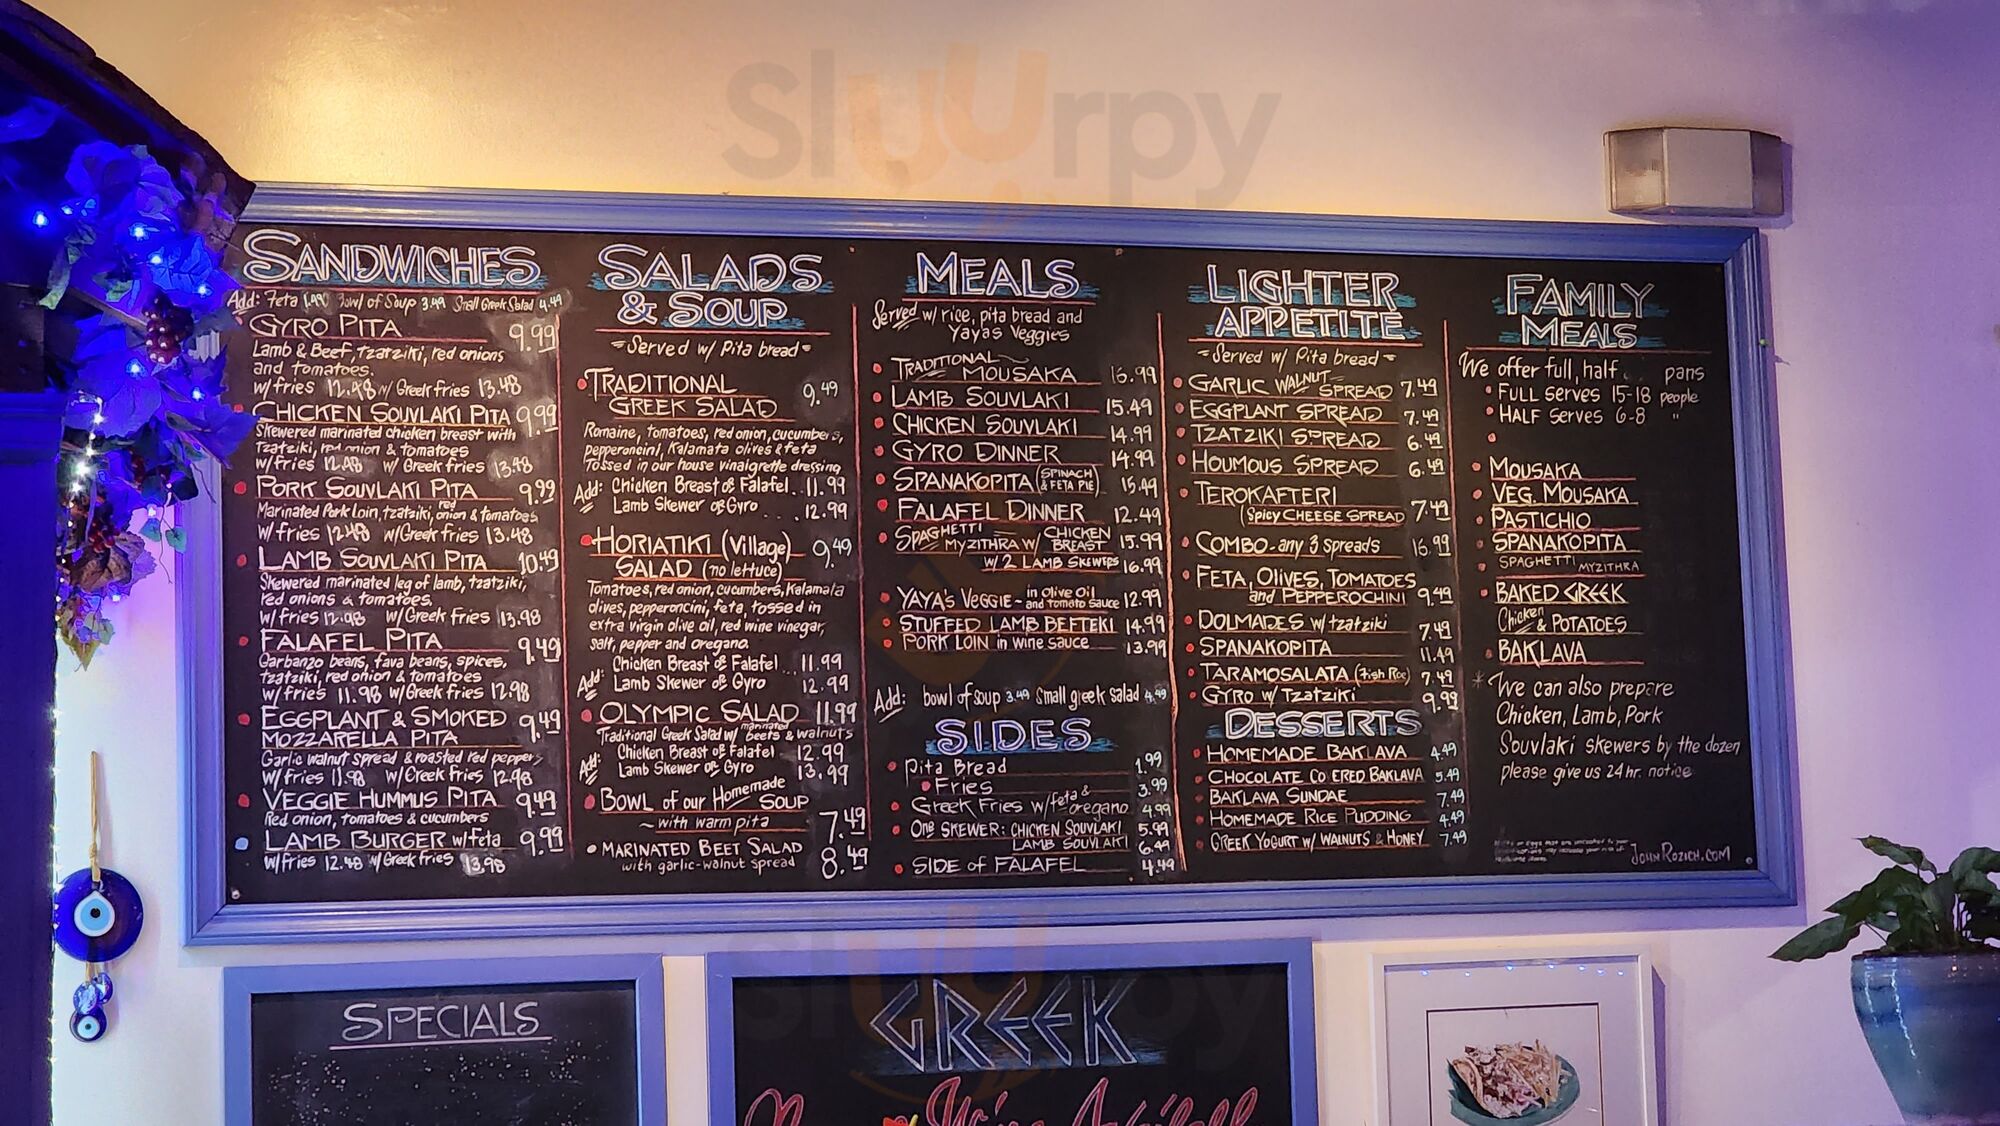 Sluurpy
SANDWICHES
Add: Feta 1.49 Bowl of Soup 3.49 Small Greek Salad 4.49
GYRO PITA 9.99
Lamb & Beef, tzatziki, red onions
and tomatoes.
w/fries 12.48 w/Greek fries 13.48
CHICKEN SOUVLAKI PITA 9.99
Skewered marinated chicken breast with
Tzatziki, red onion & tomatoes
w/fries 12.48 w/Greek fries 13.48
PORK SOUVLAKI PITA 9.99
Marinated Pork loin, tzatziki, red onion & tomatoes
w/fries 12.48 w/Greek fries 13.48
LAMB SOUVLAKI PITA 10.49
Skewered marinated leg of lamb, tzatziki,
red onions & tomatoes.
w/fries 12.98 w/Greek fries 13.98
FALAFEL PITA 9.49
Garbanzo beans, fava beans, spices,
tzatziki, red onion & tomatoes
w/fries 11.98 w/Greek fries 12.98
EGGPLANT & SMOKED 9.49
MOZZARELLA PITA
Garlic walnut spread & roasted red peppers
w/fries 11.98 w/Greek fries 12.98
VEGGIE HUMMUS PITA 9.49
Red onion, tomatoes & cucumbers
LAMB BURGER w/feta 9.99
w/fries 12.48 w/Greek fries 13.98
SALADS
& SOUP
Served w/ Pita bread
TRADITIONAL
GREEK SALAD 9.49
Romaine, tomatoes, red onion, cucumbers,
pepperoncini, Kalamata olives & feta
Tossed in our house vinaigrette dressing
Add: Chicken Breast or Falafel .. 11.99
Lamb Skewer or Gyro . . . 12.99
HORIATIKI (Village) 9.49
SALAD (no lettuce)
Tomatoes, red onion, cucumbers, Kalamata
olives, pepperoncini, feta, tossed in
extra virgin olive oil, red wine vinegar,
salt, pepper and oregano.
Add: Chicken Breast or Falafel .. 11.99
Lamb Skewer or Gyro 12.99
OLYMPIC SALAD 11.99
Traditional Greek Salad w/ marinated beets & walnuts
Add: Chicken Breast or Falafel 12.99
Lamb Skewer or Gyro 13.99
BOWL OF OUR Homemade SOUP
~with warm pita 7.49
MARINATED BEET SALAD
with garlic-walnut spread 8.49
MEALS
Served w/ rice, pita bread and
Yaya's Veggies
TRADITIONAL
MOUSAKA 16.99
LAMB SOUVLAKI 15.49
CHICKEN SOUVLAKI 14.99
GYRO DINNER 14.99
SPANAKOPITA (SPINACH & FETA PIE) 15.49
FALAFEL DINNER 12.49
SPAGHETTI MYZITHRA W/ CHICKEN BREAST 15.99
w/ 2 LAMB SKEWERS 16.99
YAYA'S VEGGIE ~ in Olive Oil and tomato sauce 12.99
STUFFED LAMB BEFTEKI 14.99
PORK LOIN in wine sauce 13.99
Add: bowl of soup 3.49 Small greek salad 4.49
SIDES
Pita Bread 1.99
Fries 3.99
Greek Fries w/feta & oregano 4.99
One SKEWER: CHICKEN SOUVLAKI 5.99
LAMB SOUVLAKI 6.49
SIDE of FALAFEL 4.49
LIGHTER
APPETITE
Served w/ Pita bread
GARLIC WALNUT SPREAD 7.49
EGGPLANT SPREAD 7.49
TZATZIKI SPREAD 6.49
HOUMOUS SPREAD 6.49
TEROKAFTERI
(Spicy CHEESE SPREAD) 7.49
COMBO - any 3 spreads 16.99
FETA, OLIVES, TOMATOES
and PEPPEROCHINI 9.49
DOLMADES w/ tzatziki 7.49
SPANAKOPITA 11.49
TARAMOSALATA (Fish Roe) 7.49
GYRO w/ Tzatziki 9.99
DESSERTS
HOMEMADE BAKLAVA 4.49
CHOCOLATE CO ERED BAKLAVA 5.49
BAKLAVA SUNDAE 7.49
HOMEMADE RICE PUDDING 4.49
GREEK YOGURT w/ WALNUTS & HONEY 7.49
FAMILY
MEALS
We offer full, half pans
FULL serves 15-18 people
HALF serves 6-8 "
MOUSAKA
VEG. MOUSAKA
PASTICHIO
SPANAKOPITA
SPAGHETTI MYZITHRA
BAKED GREEK
Chicken & POTATOES
BAKLAVA
* We can also prepare
Chicken, Lamb, Pork
Souvlaki skewers by the dozen
please give us 24 hr. notice
JOHNROZICH.COM
SPECIALS
GREEK
sluurpy